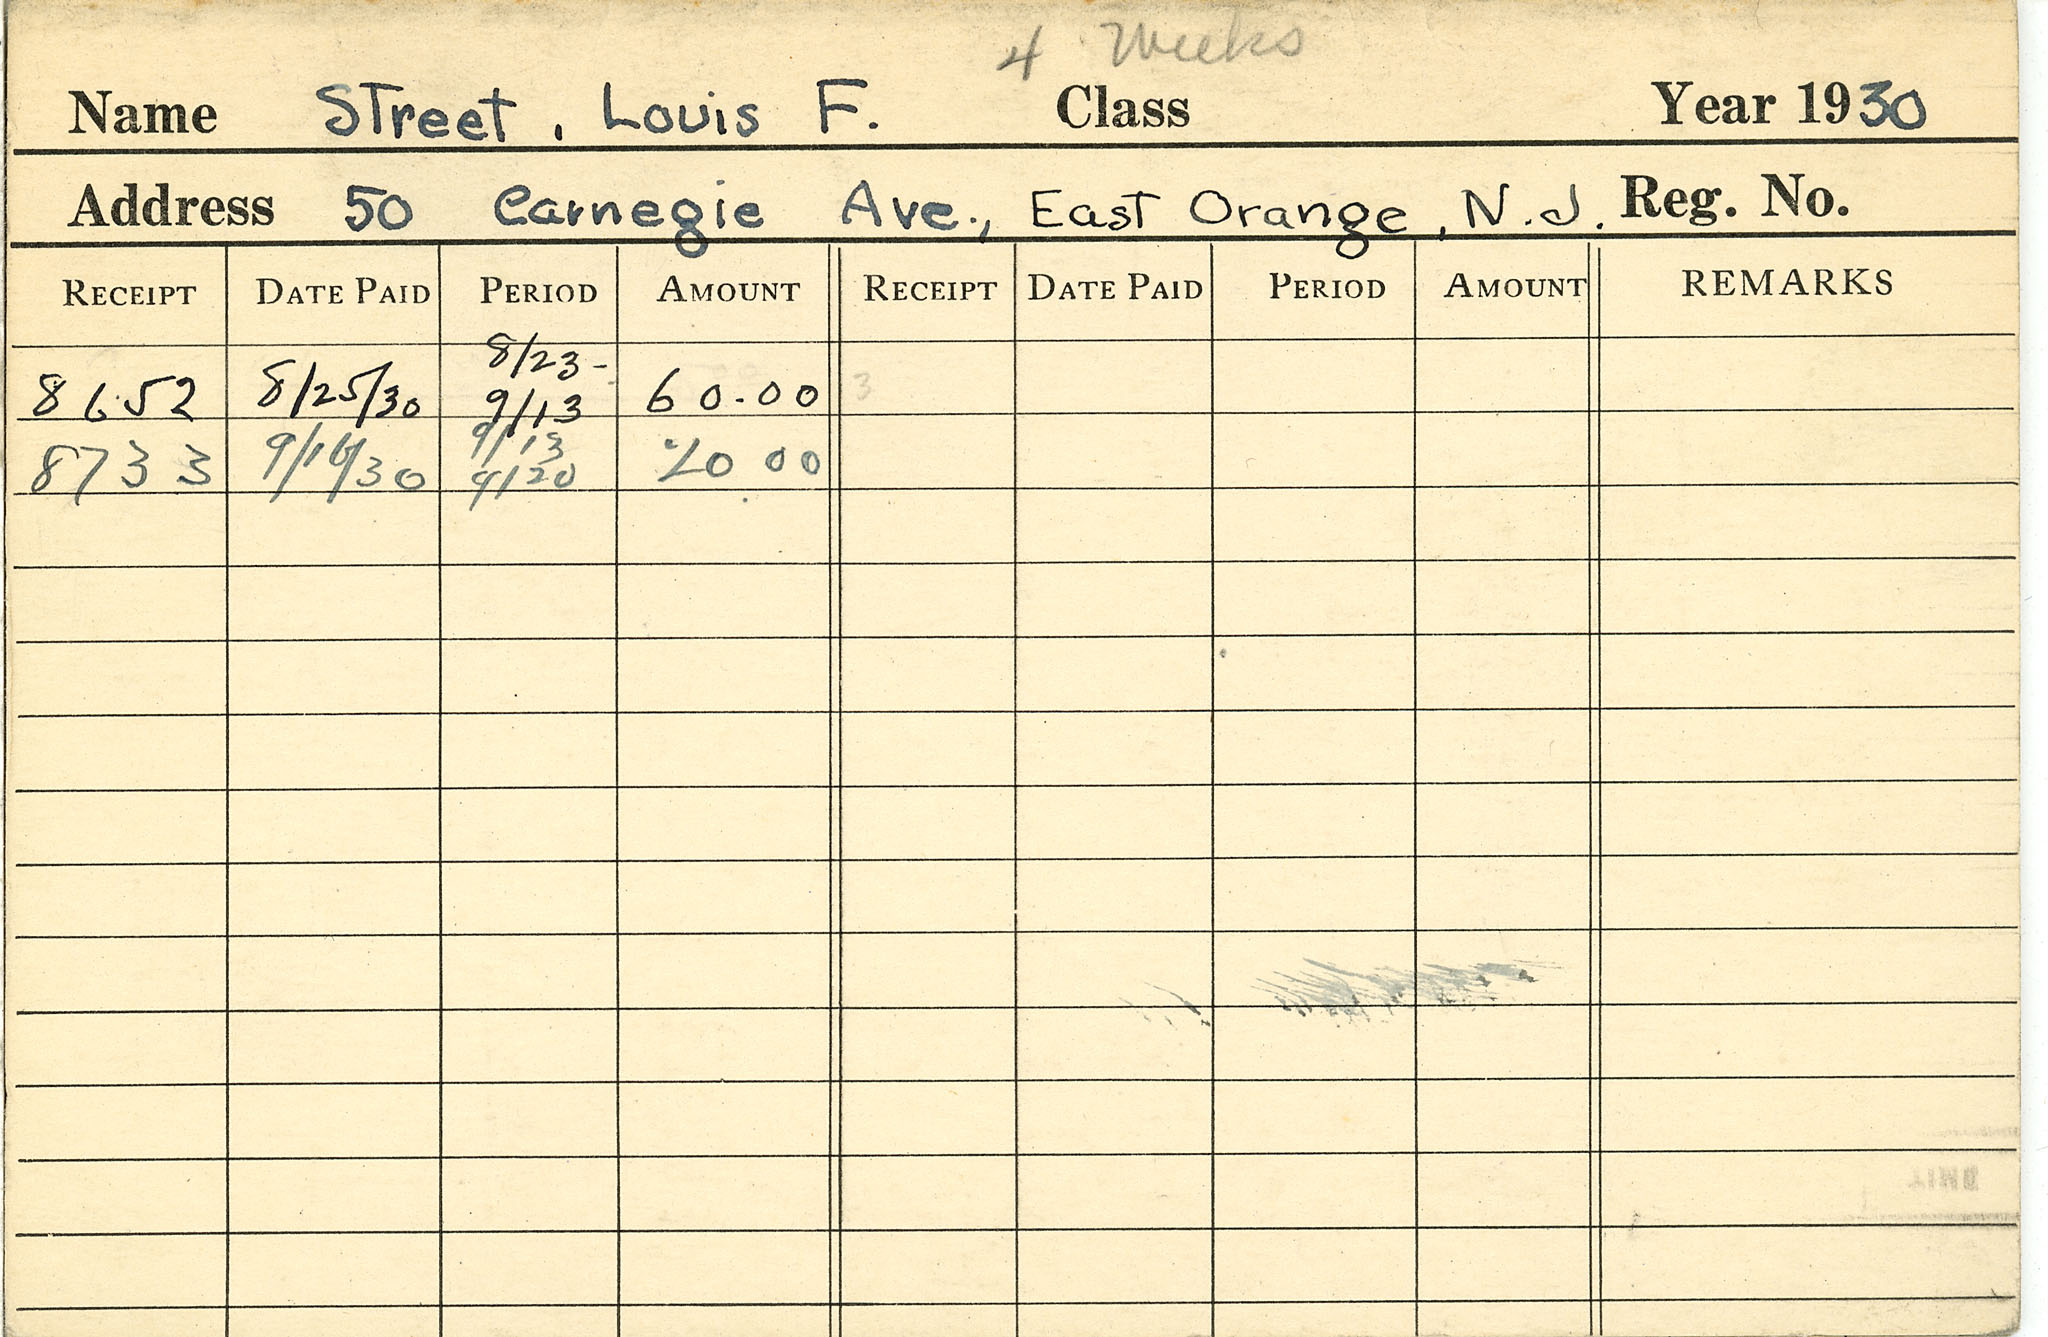 4 Weeks
Name Street, Louis F. Class Year 1930
Address 50 Carnegie Ave., East Orange, N.J. Reg. No.
RECEIPT DATE PAID PERIOD AMOUNT RECEIPT DATE PAID PERIOD AMOUNT REMARKS
8652 8/25/30 8/23-9/13 60.00 3
8733 9/16/30 9/13 9/20 20 00